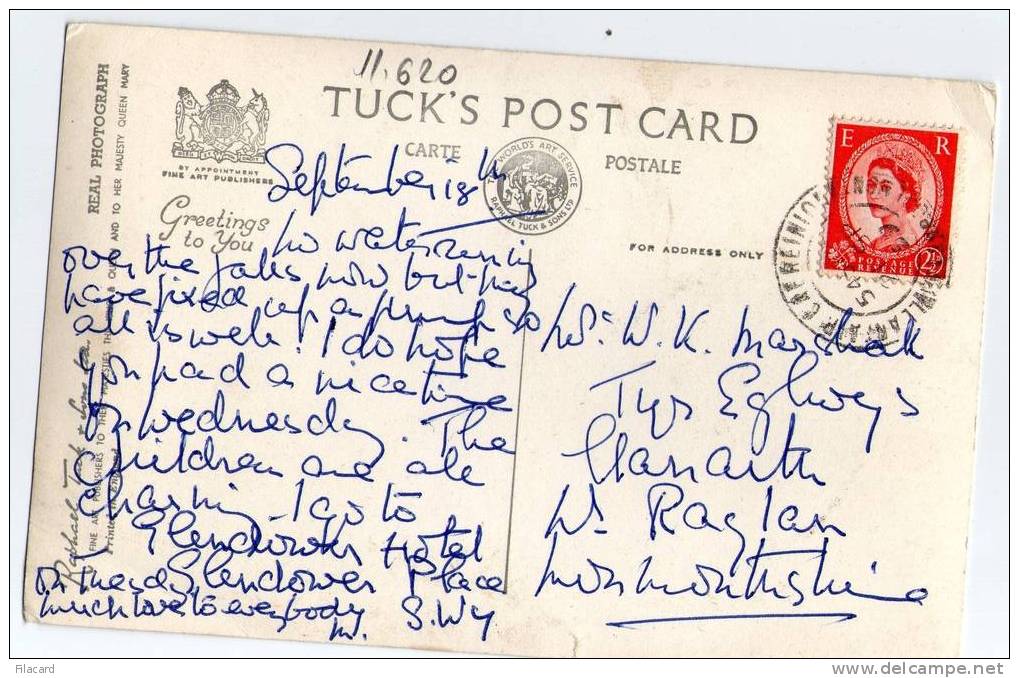 11.620
TUCK'S POST CARD
CARTE POSTALE
THE WORLD'S ART SERVICE
RAPHAEL TUCK & SONS LTD
BY APPOINTMENT
FINE ART PUBLISHERS
Greetings
to You
FOR ADDRESS ONLY
E R
POSTAGE
REVENUE
2½
REAL PHOTOGRAPH
Raphael Tuck & Sons Ltd.
FINE ART PUBLISHERS TO THEIR MAJESTIES THE QUEEN AND TO HER MAJESTY QUEEN MARY
Printed in England
September 18th
No water running
over the falls now but
have fixed up a pump so
all is well! I do hope
you had a nice time
on Wednesday. The
children are all
charming. I go to
Glendower Hotel
on Glendower Place
much love to everybody S.W7
M.
W. K. Marshall
Tyr Eglwys
Llanarth
Nr Raglan
Monmouthshire
Filacard
www.delcampe.net